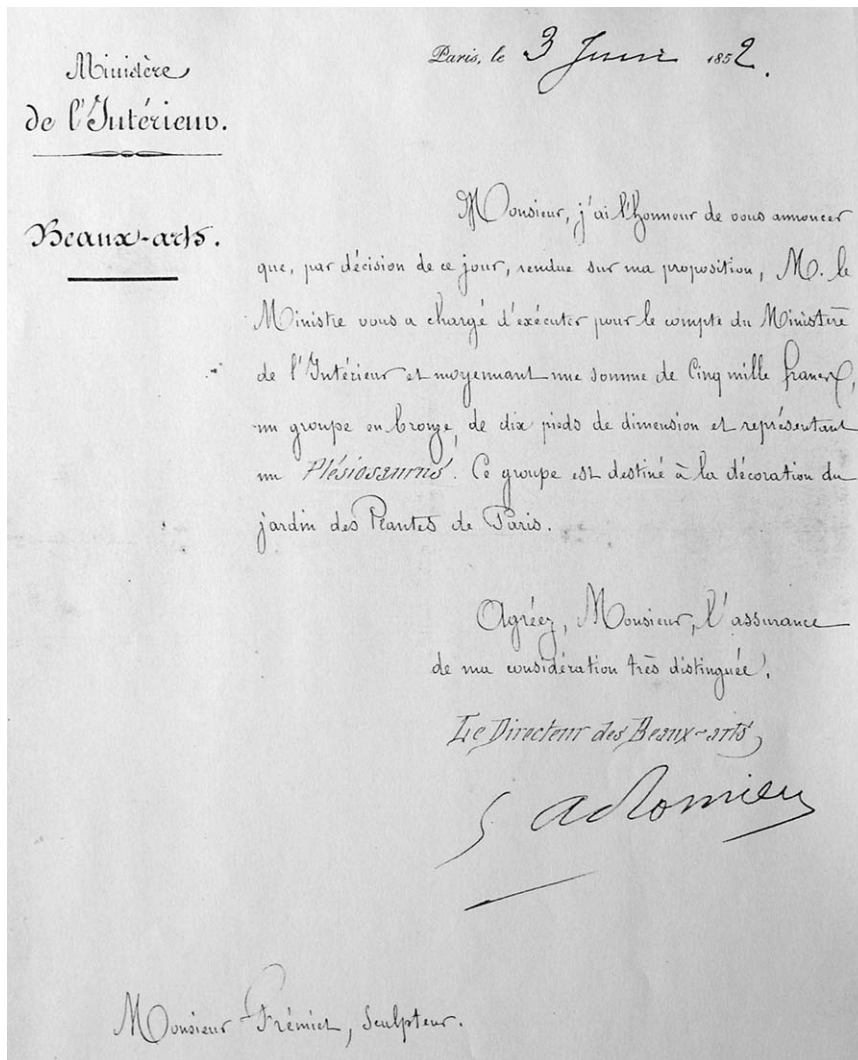 Ministère
de l'Intérieur.
Beaux-arts.
Paris, le 3 Juin 1852.
Monsieur, j'ai l'honneur de vous annoncer
que, par décision de ce jour, rendue sur ma proposition, M. le
Ministre vous a chargé d'exécuter pour le compte du Ministère
de l'Intérieur et moyennant une somme de Cinq mille francs,
un groupe en bronze, de dix pieds de dimension et représentant
un Plésiosaurus. Ce groupe est destiné à la décoration du
jardin des Plantes de Paris.
Agréez, Monsieur, l'assurance
de ma considération très distinguée.
Le Directeur des Beaux-arts,
Romieu
Monsieur Frémiet, Sculpteur.